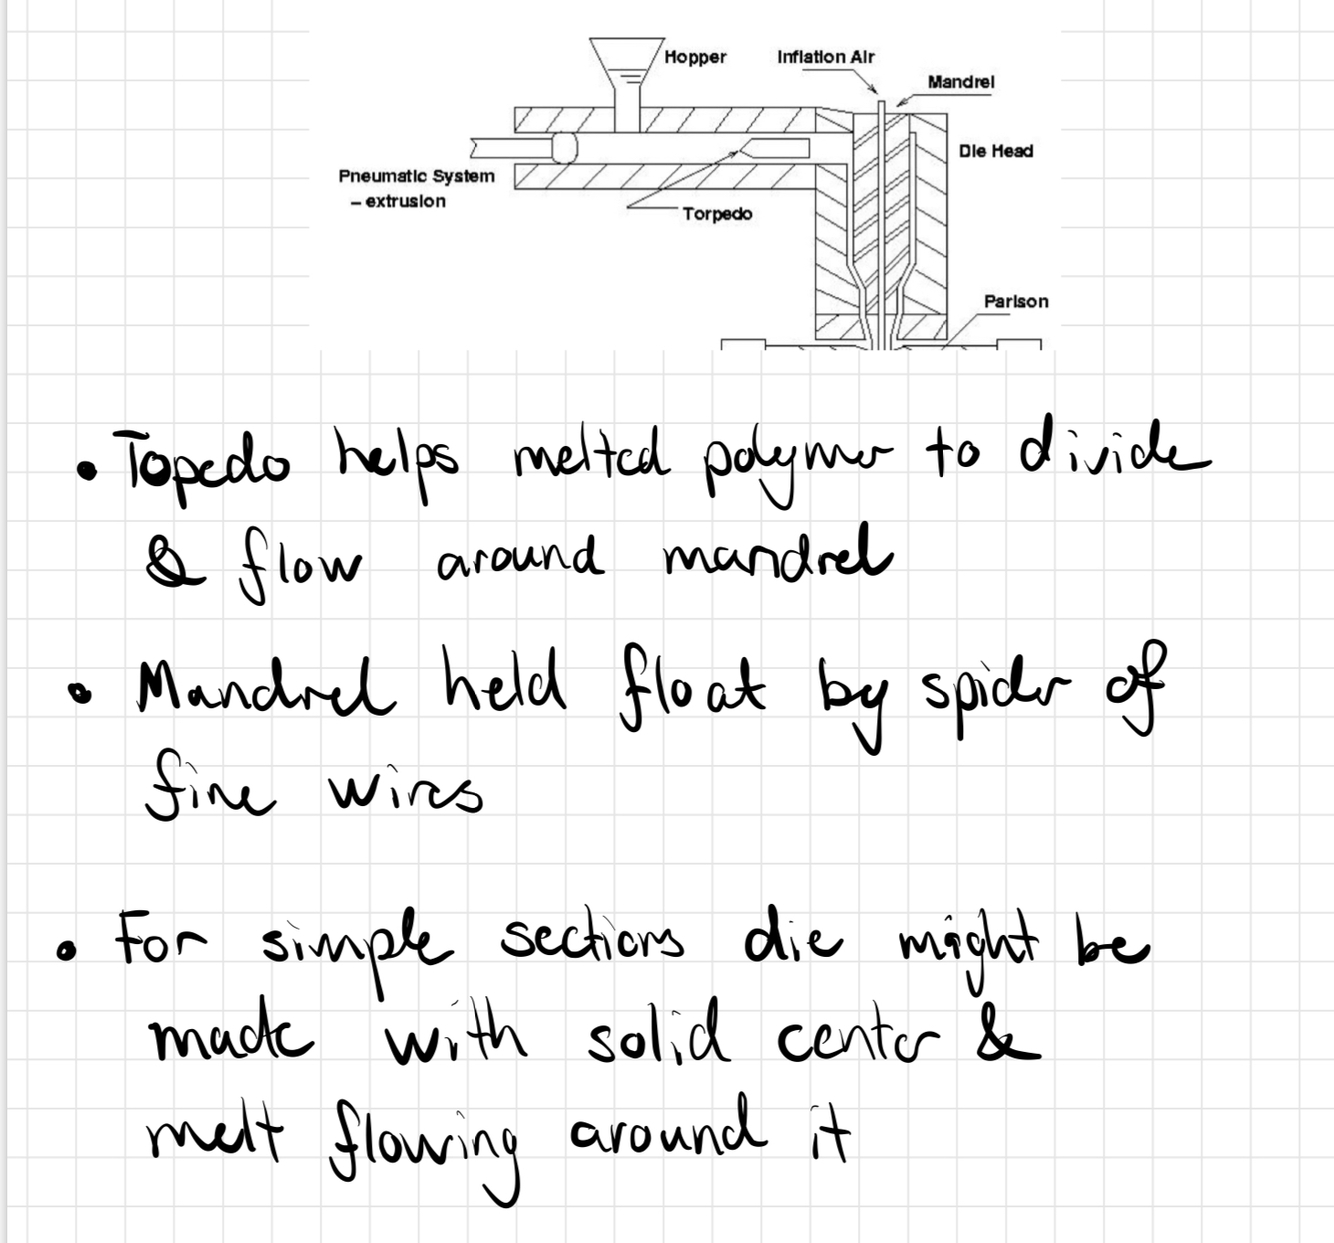 Hopper
Inflation Air
Mandrel
Die Head
Pneumatic System
– extrusion
Torpedo
Parison
• Topedo helps melted polymer to divide
& flow around mandrel
• Mandrel held float by spider of
fine wires
• For simple sections die might be
made with solid center &
melt flowing around it